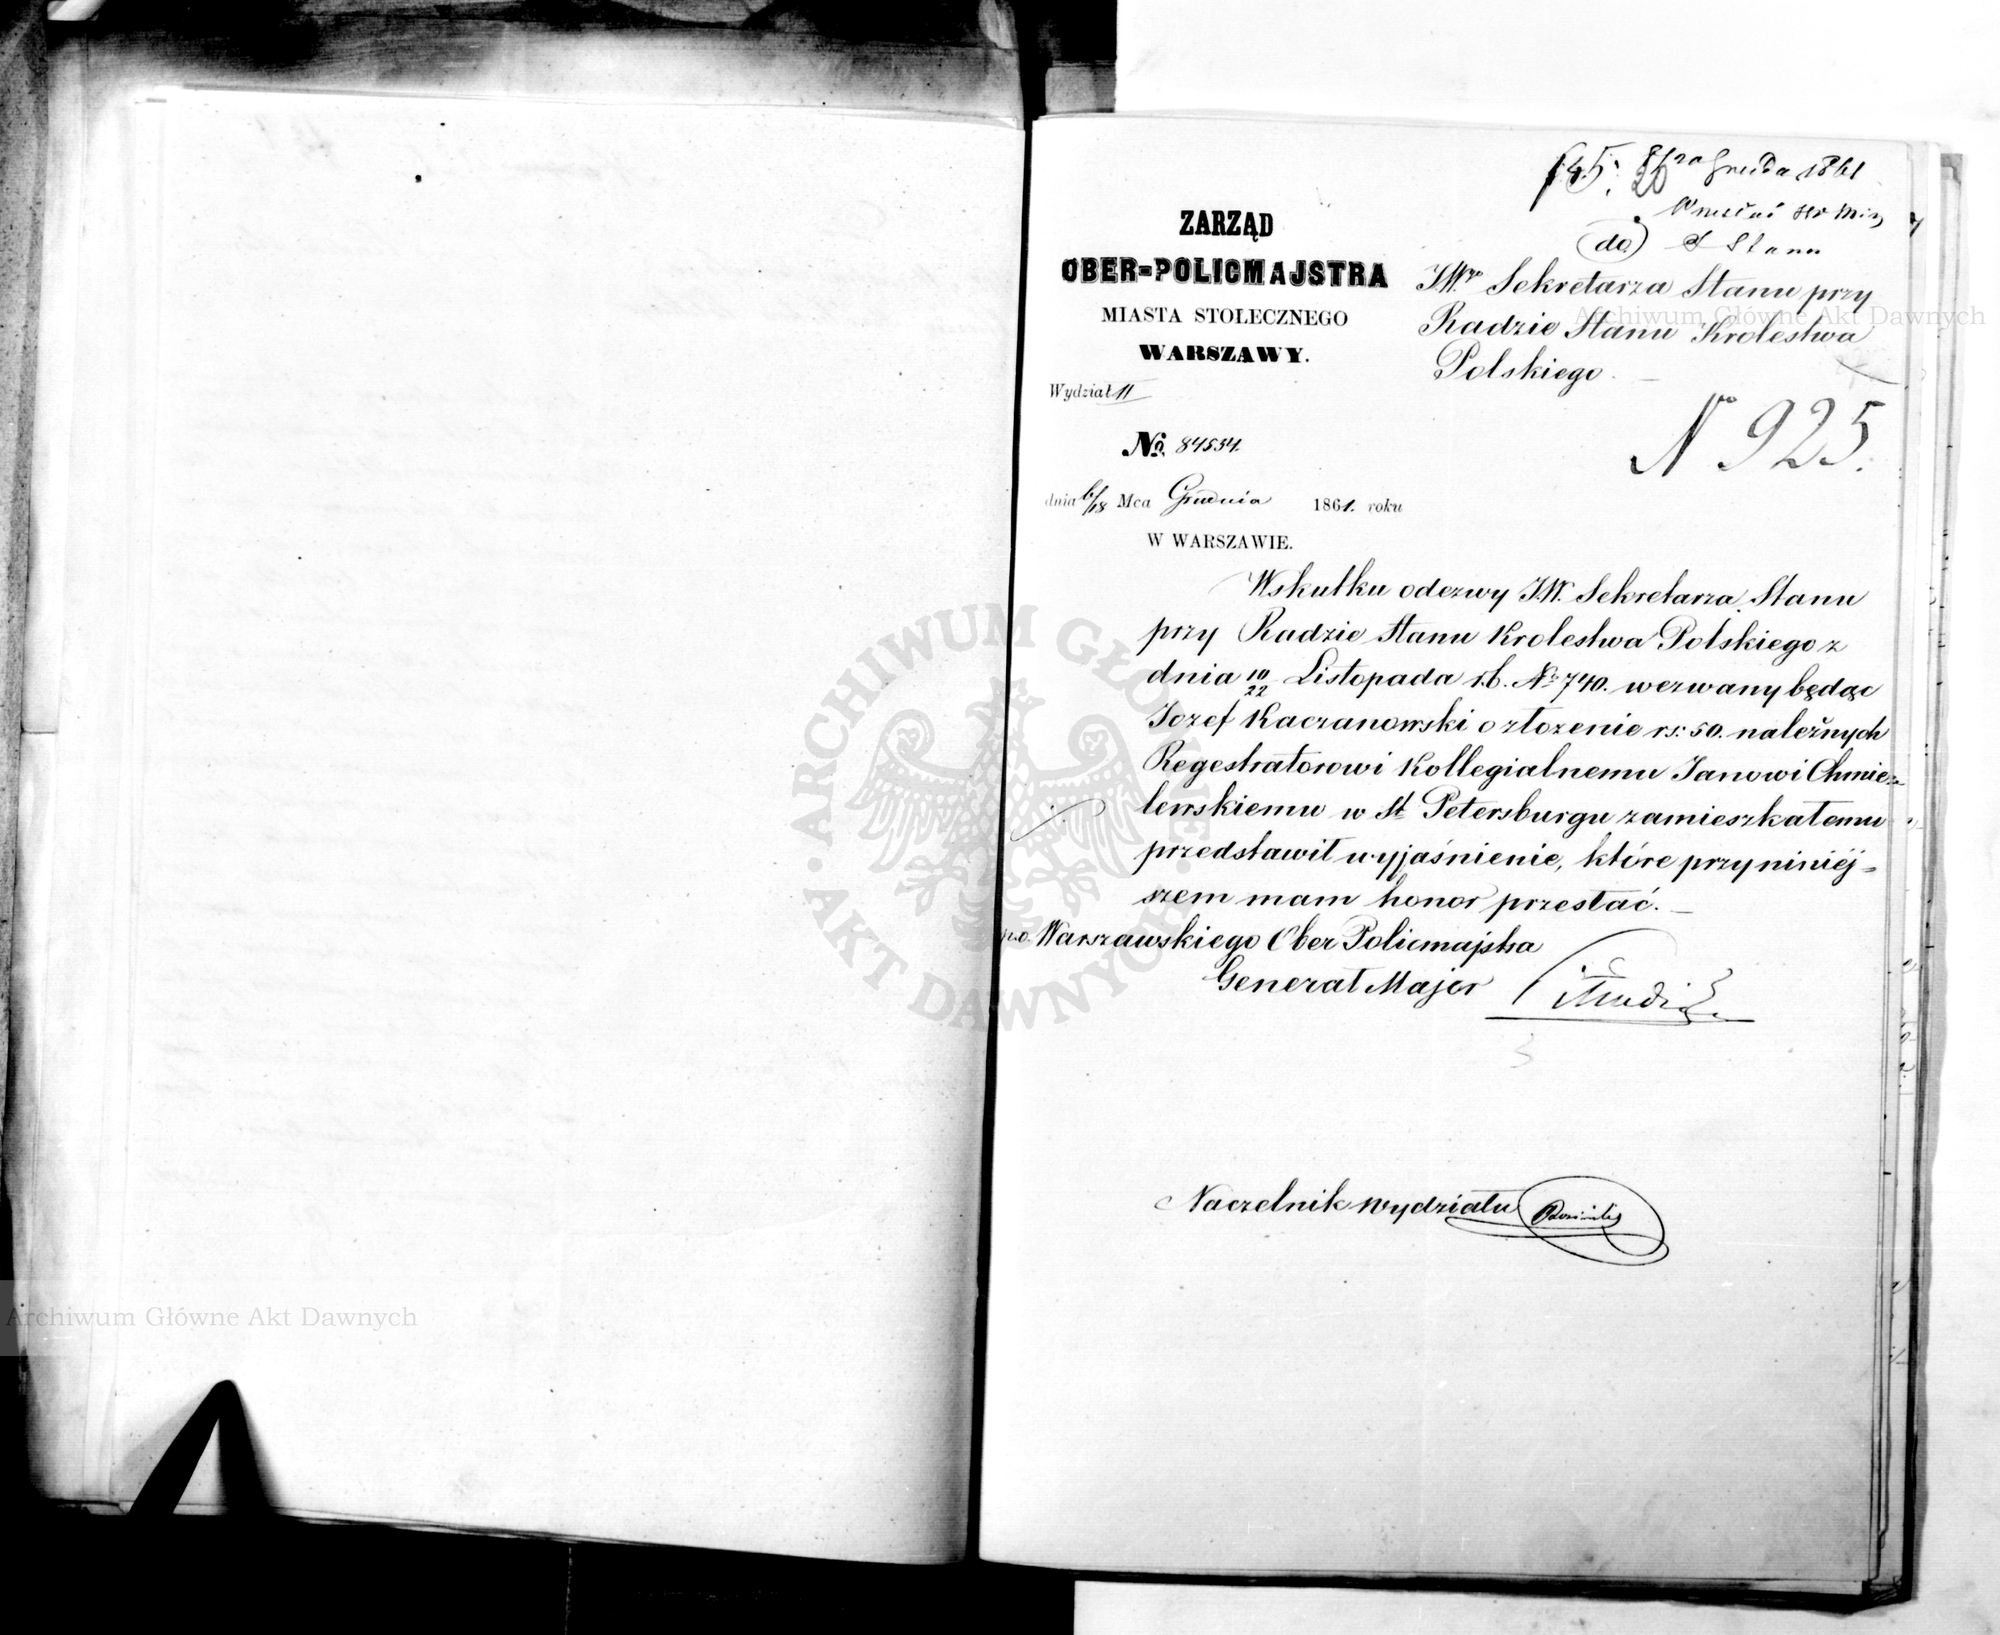 ZARZĄD
OBER-POLICMAJSTRA
MIASTA STOŁECZNEGO
WARSZAWY.
Wydział II
No. 84534.
dnia 6/18 Mca Grudnia 1861. roku
W WARSZAWIE.
Grudnia 1861
do
JWgo Sekretarza Stanu przy
Radzie Stanu Krolestwa
Polskiego.
No 925.
Wskutku odezwy JW. Sekretarza Stanu
przy Radzie Stanu Krolestwa Polskiego z
dnia 10/22 Listopada r.b. No 740. wezwany będąc
Jozef Kaczanowski o złozenie rs: 50. należnych
Regestratorowi Kollegialnemu Janowi Chmie=
lewskiemu w St Petersburgu zamieszkałemu
przedstawił wyjaśnienie, które przy niniéj=
szem mam honor przesłać.
p.o. Warszawskiego Ober Policmajstra
Generał Major
Naczelnik Wydziału
Archiwum Główne Akt Dawnych
Archiwum Główne Akt Dawnych
ARCHIWUM GŁÓWNE · AKT DAWNYCH ·